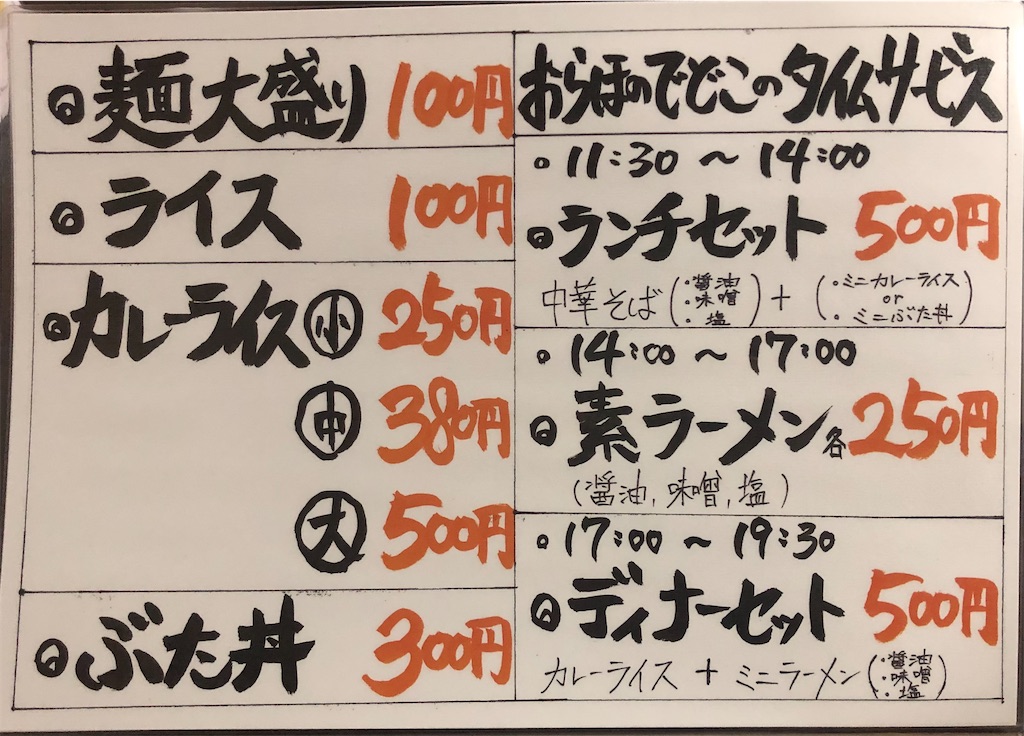 ◎麺大盛り 100円
◎ライス 100円
◎カレーライス㊙小 250円
㊥ 380円
大 500円
◎ぶた丼 300円
おらほのでどこのタイムサービス
。11:30 〜 14:00
◎ランチセット 500円
中華そば(・醤油 ・味噌 ・塩) + (・ミニカレーライス or ・ミニぶた丼)
。14:00 〜 17:00
◎素ラーメン各250円
(醤油,味噌,塩)
。17:00 〜 19:30
◎ディナーセット 500円
カレーライス + ミニラーメン(・醤油 ・味噌 ・塩)